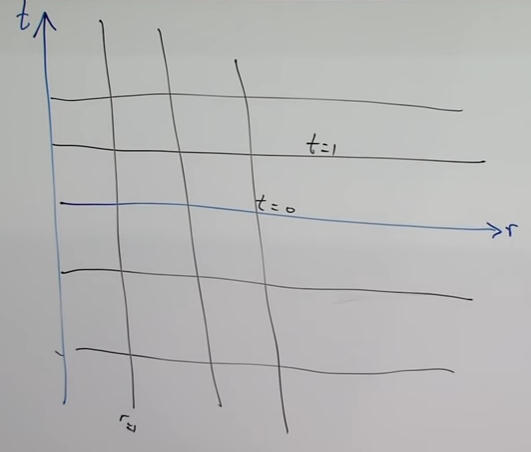 t
t=1
t=0
r
r=1